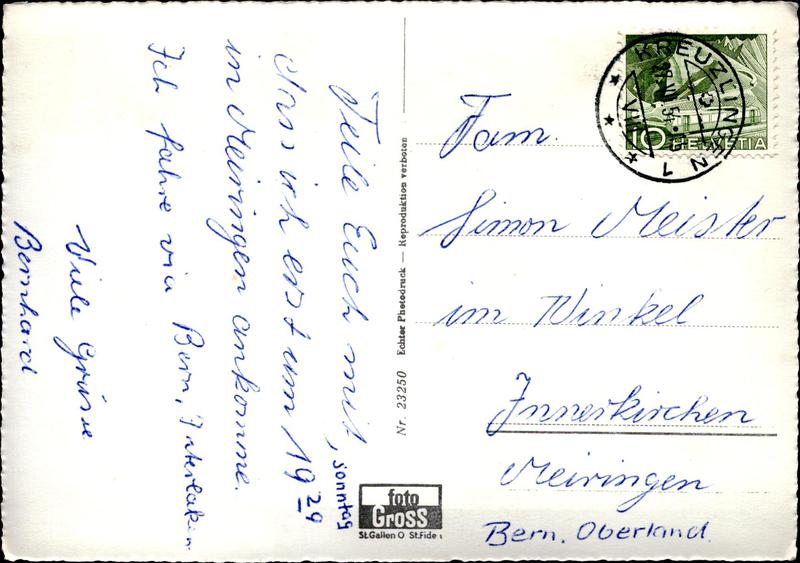 Teile Euch mit,
dass ich erst um 19 29 Sonntag
in Meiringen ankomme.
Ich fahre via Bern, Interlaken
Viele Grüsse
Bernhard
Nr. 23250 Echter Photodruck — Reproduktion verboten
foto
Gross
St.Gallen O St.Fide
KREUZLINGEN 1
10 HELVETIA
Fam.
Simon Meister
im Winkel
Innerkirchen
Meiringen
Bern. Oberland.